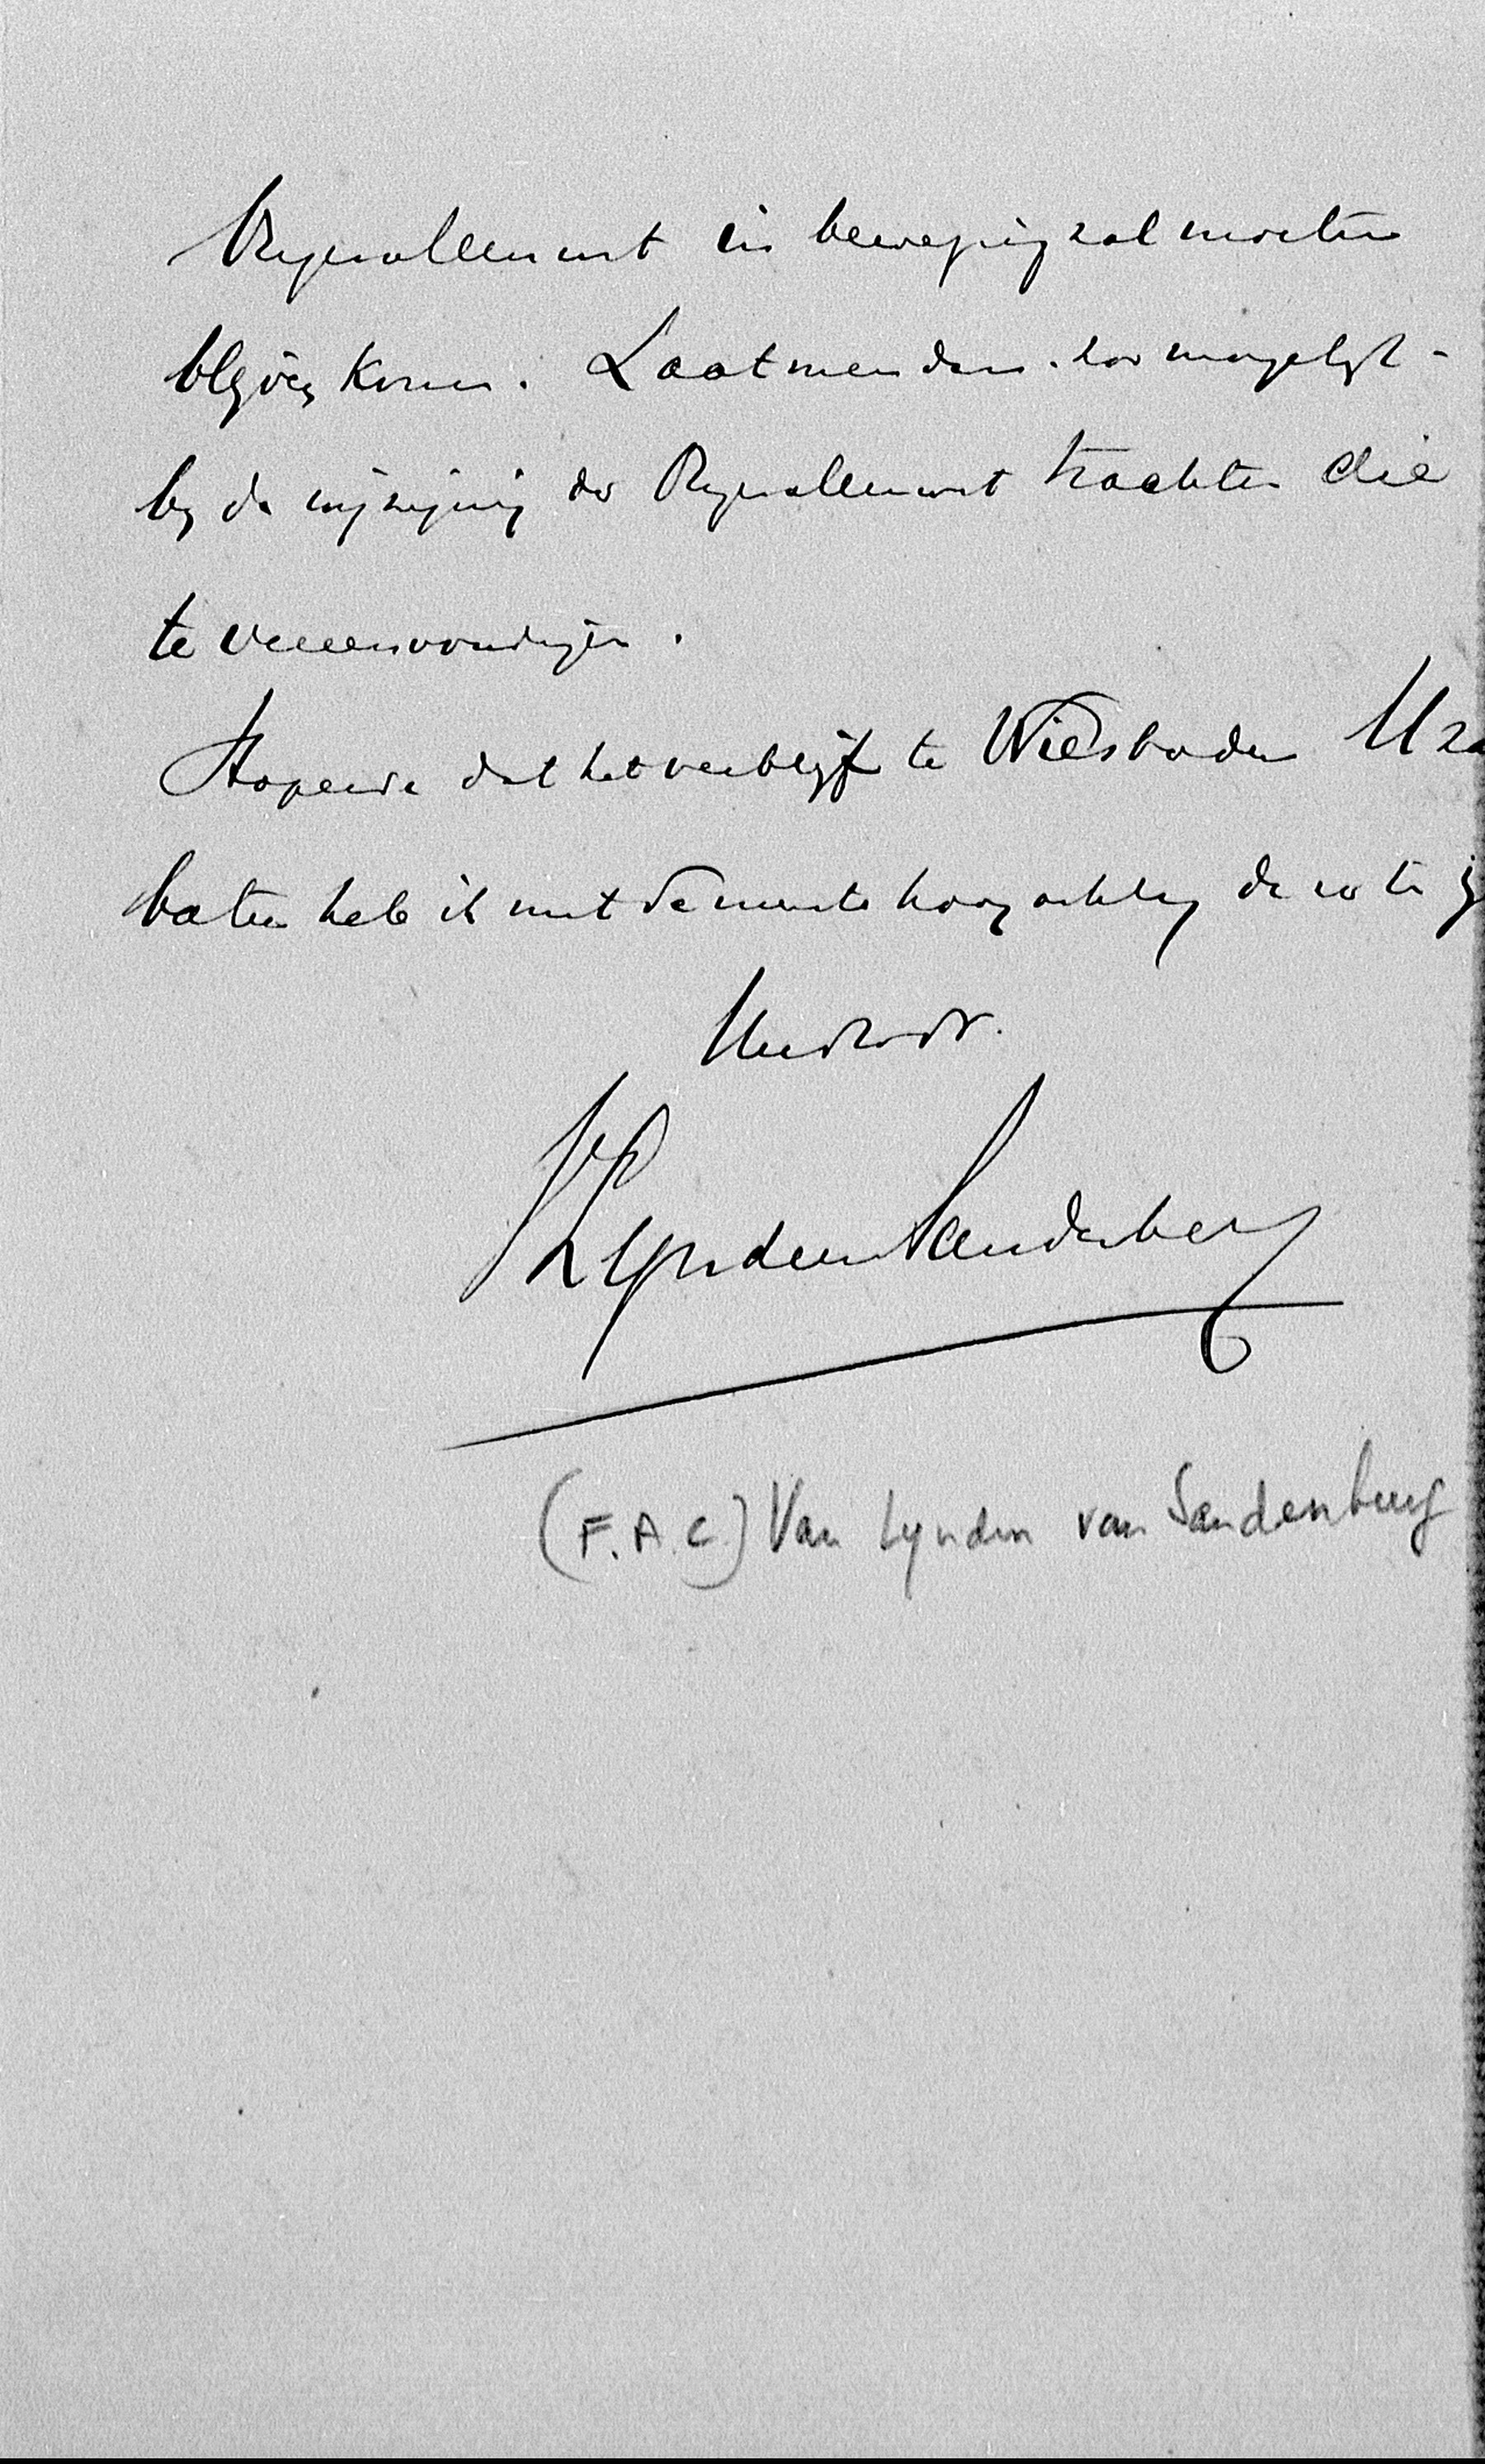 Reglement in beweging zal moeten
blijven komen. Laat men dan zoo mogelijk -
bij de wijziging der Reglement trachten die
te vereenvoudigen.
Hopende dat het verblijf te Wiesbaden U za
baten heb ik met de meeste hoogachting de eer te z
UwdwDr.
VLyndenSandenberg
(F.A.C.) Van Lynden van Sandenburg